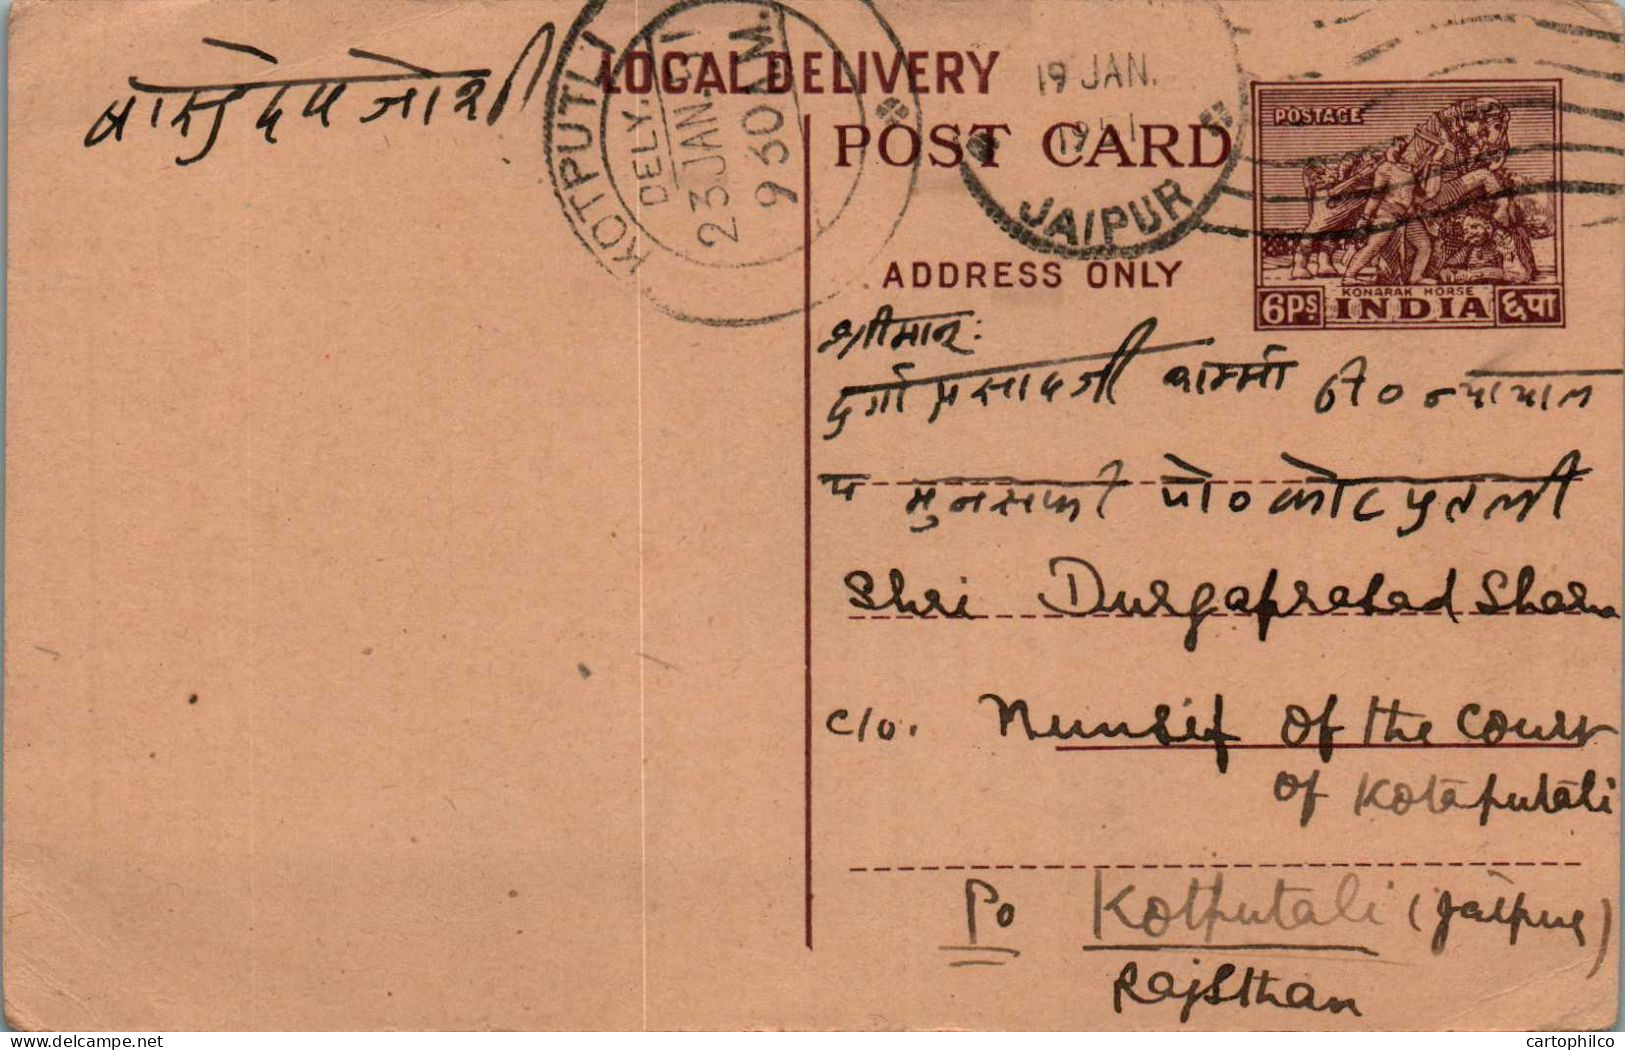 वासुदेव जोशी
KOTPUTLI
DELY.
23 JAN. 51
9 30 A.M.
LOCAL DELIVERY
POST CARD
19 JAN.
1951
JAIPUR
ADDRESS ONLY
POSTAGE
KONARAK HORSE
6 Ps INDIA ६ पा
श्रीमान:
दुर्गा प्रसादजी शर्म्मा ठि० न्यायाल
य मुनसफी पो० कोटपुतली
Shri Durgaprasad Sharma
c/o. Munsif of the Court
of Kotaputali
Po Kotputali (Jaipur)
Rajsthan
cartophilco